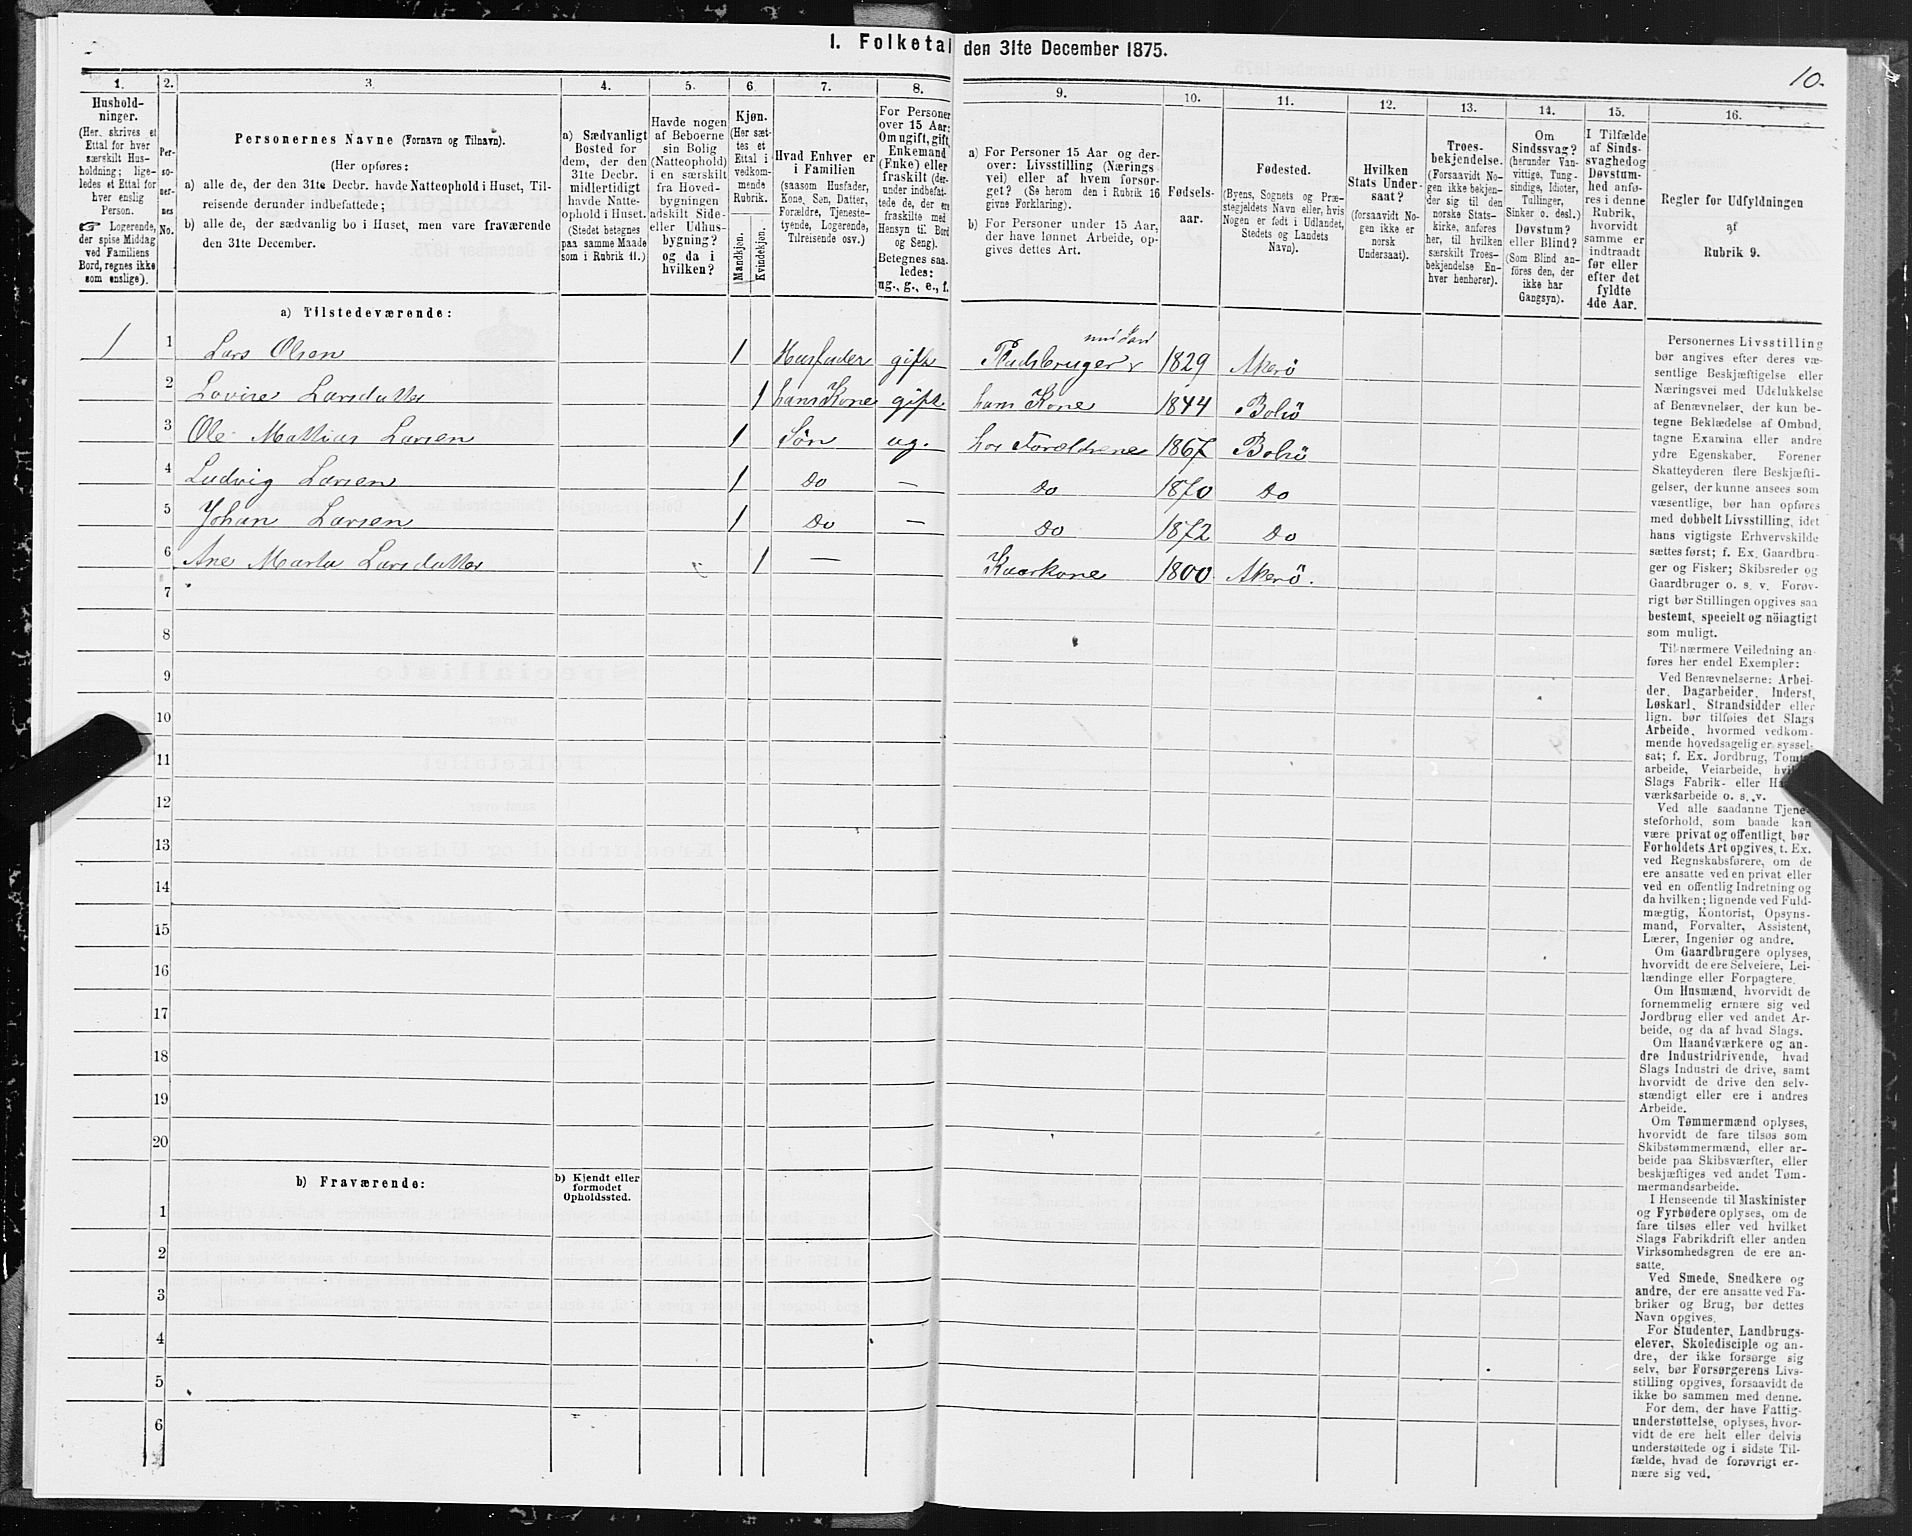 I. Folketal den 31te December 1875.
10.
1.
Hushold-
ninger.
(Her skrives et
Ettal for hver
særskilt Hus-
holdning; lige-
ledes et Ettal for
hver enslig
Person.
☞ Logerende,
der spise Middag
ved Familiens
Bord, regnes ikke
som enslige).
2.
Per-
so-
ner-
nes
No.
3.
Personernes Navne (Fornavn og Tilnavn).
(Her opføres:
a) alle de, der den 31te Decbr. havde Natteophold i Huset, Til-
reisende derunder indbefattede;
b) alle de, der sædvanlig bo i Huset, men vare fraværende
den 31te December.
4.
a) Sædvanligt
Bosted for
dem, der den
31te Decbr.
midlertidigt
havde Natte-
ophold i Huset.
(Stedet betegnes
paa samme Maade
som i Rubrik 11.)
5.
Havde nogen
af Beboerne
sin Bolig
(Natteophold)
i en særskilt
fra Hoved-
bygningen
adskilt Side-
eller Udhus-
bygning?
og da i
hvilken?
6.
Kjøn.
(Her sæt-
tes et
Ettal i
vedkom-
mende
Rubrik.
Mandkjøn.
Kvindekjøn.
7.
Hvad Enhver er
i Familien
(saasom Husfader,
Kone, Søn, Datter,
Forældre, Tjeneste-
tyende, Logerende,
Tilreisende osv.)
8.
For Personer
over 15 Aar:
Om ugift, gift,
Enkemand
(Enke) eller
fraskilt (der-
under indbefat-
tede de, der ere
fraskilte med
Hensyn til Bord
og Seng).
Betegnes saa-
ledes:
ug., g., e., f.
9.
a) For Personer 15 Aar og der-
over: Livsstilling (Nærings-
vei) eller af hvem forsør-
get? (Se herom den i Rubrik 16
givne Forklaring).
b) For Personer under 15 Aar,
der have lønnet Arbeide, op-
gives dettes Art.
10.
Fødsels-
aar.
11.
Fødested.
(Byens, Sognets og Præ-
stegjeldets Navn eller, hvis
Nogen er født i Udlandet,
Stedets og Landets
Navn).
12.
Hvilken
Stats Under-
saat?
(forsaavidt No-
gen ikke er
norsk
Undersaat).
13.
Troes-
bekjendelse.
(Forsaavidt No-
gen ikke bekjen-
der sig til den
norske Stats-
kirke, anføres
her, til hvilken
særskilt Troes-
bekjendelse En-
hver henhører).
14.
Om
Sindssvag?
(herunder Van-
vittige, Tung-
sindige, Idioter,
Tullinger,
Sinker o. desl.)
Døvstum?
eller Blind?
(Som Blind an-
føres den, der
ikke har
Gangsyn).
15.
I Tilfælde
af Sinds-
svaghed og
Døvstum-
hed anfø-
res i denne
Rubrik,
hvorvidt
samme er
indtraadt
før eller
efter det
fyldte
4de Aar.
16.
Regler for Udfyldningen
af
Rubrik 9.
a) Tilstedeværende:
1 1 Lars Olsen 1 Husfader gift 1829 Akerö
2 Lovise Larsdatter 1 hans Kone gift hans Kone 1844 Bolsö
3 Ole Mattias Larsen 1 Søn ug. hos Forældrene 1867 Bolsö
4 Ludvig Larsen 1 Do — Do 1870 Do
5 Johan Larsen 1 Do — Do 1872 Do
6 Ane Marta Larsdatter 1 — Kaarkone 1800 Akerö.
7
8
9
10
11
12
13
14
15
16
17
18
19
20
b) Fraværende:
b) Kjendt eller
formodet
Opholdssted.
1
2
3
4
5
6
Personernes Livsstilling
bør angives efter deres væ-
sentlige Beskjæftigelse eller
Næringsvei med Udelukkelse
af Benævnelser, der kun be-
tegne Beklædelse af Ombud,
tagne Examina eller andre
ydre Egenskaber. Forener
Skatteyderen flere Beskjæfti-
gelser, der kunne ansees som
væsentlige, bør han opføres
med dobbelt Livsstilling, idet
hans vigtigste Erhvervskilde
sættes først; f. Ex. Gaardbru-
ger og Fisker; Skibsreder og
Gaardbruger o. s. v. Forøv-
rigt bør Stillingen opgives saa
bestemt, specielt og nöiagtigt
som muligt.
Til nærmere Veiledning an-
føres her endel Exempler:
Ved Benævnelserne: Arbei-
der, Dagarbeider, Inderst,
Løskarl, Strandsidder eller
lign. bør tilføies det Slags
Arbeide, hvormed vedkom-
mende hovedsagelig er syssel-
sat; f. Ex. Jordbrug, Tomte-
arbeide, Veiarbeide, hvilket
Slags Fabrik- eller Haand-
værksarbeide o. s. v.
Ved alle saadanne Tjene-
steforhold, som baade kan
være privat og offentligt, bør
Forholdets Art opgives, f. Ex.
ved Regnskabsførere, om de
ere ansatte ved en privat eller
ved en offentlig Indretning og
da hvilken; lignende ved Fuld-
mægtig, Kontorist, Opsyns-
mand, Forvalter, Assistent,
Lærer, Ingeniør og andre.
Om Gaardbrugere oplyses,
hvorvidt de ere Selveiere, Lei-
lændinge eller Forpagtere.
Om Husmænd, hvorvidt de
fornemmelig ernære sig ved
Jordbrug eller ved andet Ar-
beide, og da af hvad Slags.
Om Haandværkere og an-
dre Industridrivende, hvad
Slags Industri de drive, samt
hvorvidt de drive den selv-
stændigt eller ere i andres
Arbeide.
Om Tømmermænd oplyses,
hvorvidt de fare tilsøs som
Skibstømmermænd, eller ar-
beide paa Skibsværfter, eller
beskjæftiges ved andet Tøm-
mermandsarbeide.
I Henseende til Maskinister
og Fyrbødere oplyses, om de
fare tilsøs eller ved hvilket
Slags Fabrikdrift eller anden
Virksomhedsgren de ere an-
satte.
Ved Smede, Snedkere og
andre, der ere ansatte ved Fa-
briker og Brug, bør dettes
Navn opgives.
For Studenter, Landbrugs-
elever, Skoledisciple og an-
dre, der ikke forsørge sig
selv, bør Forsørgerens Livs-
stilling opgives, forsaavidt de
ikke bo sammen med denne.
For dem, der have Fattig-
understøttelse, oplyses, hvor-
vidt de ere helt eller delvis
understøttede og i sidste Til-
fælde, hvad de forøvrigt er-
nære sig ved.